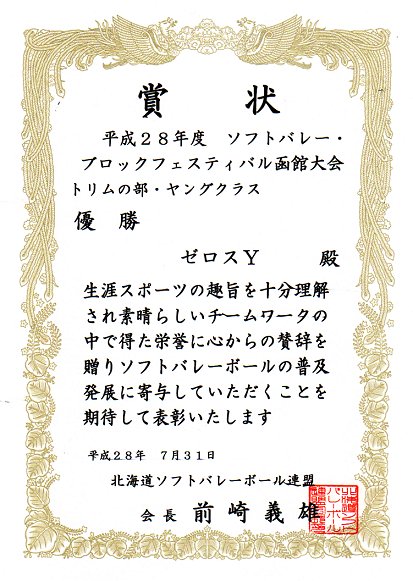 賞状
平成28年度 ソフトバレー・
ブロックフェスティバル函館大会
トリムの部・ヤングクラス
優勝
ゼロスY 殿
生涯スポーツの趣旨を十分理解
され素晴らしいチームワークの
中で得た栄誉に心からの賛辞を
贈りソフトバレーボールの普及
発展に寄与していただくことを
期待して表彰いたします
平成28年 7月31日
北海道ソフトバレーボール連盟
会長 前崎義雄